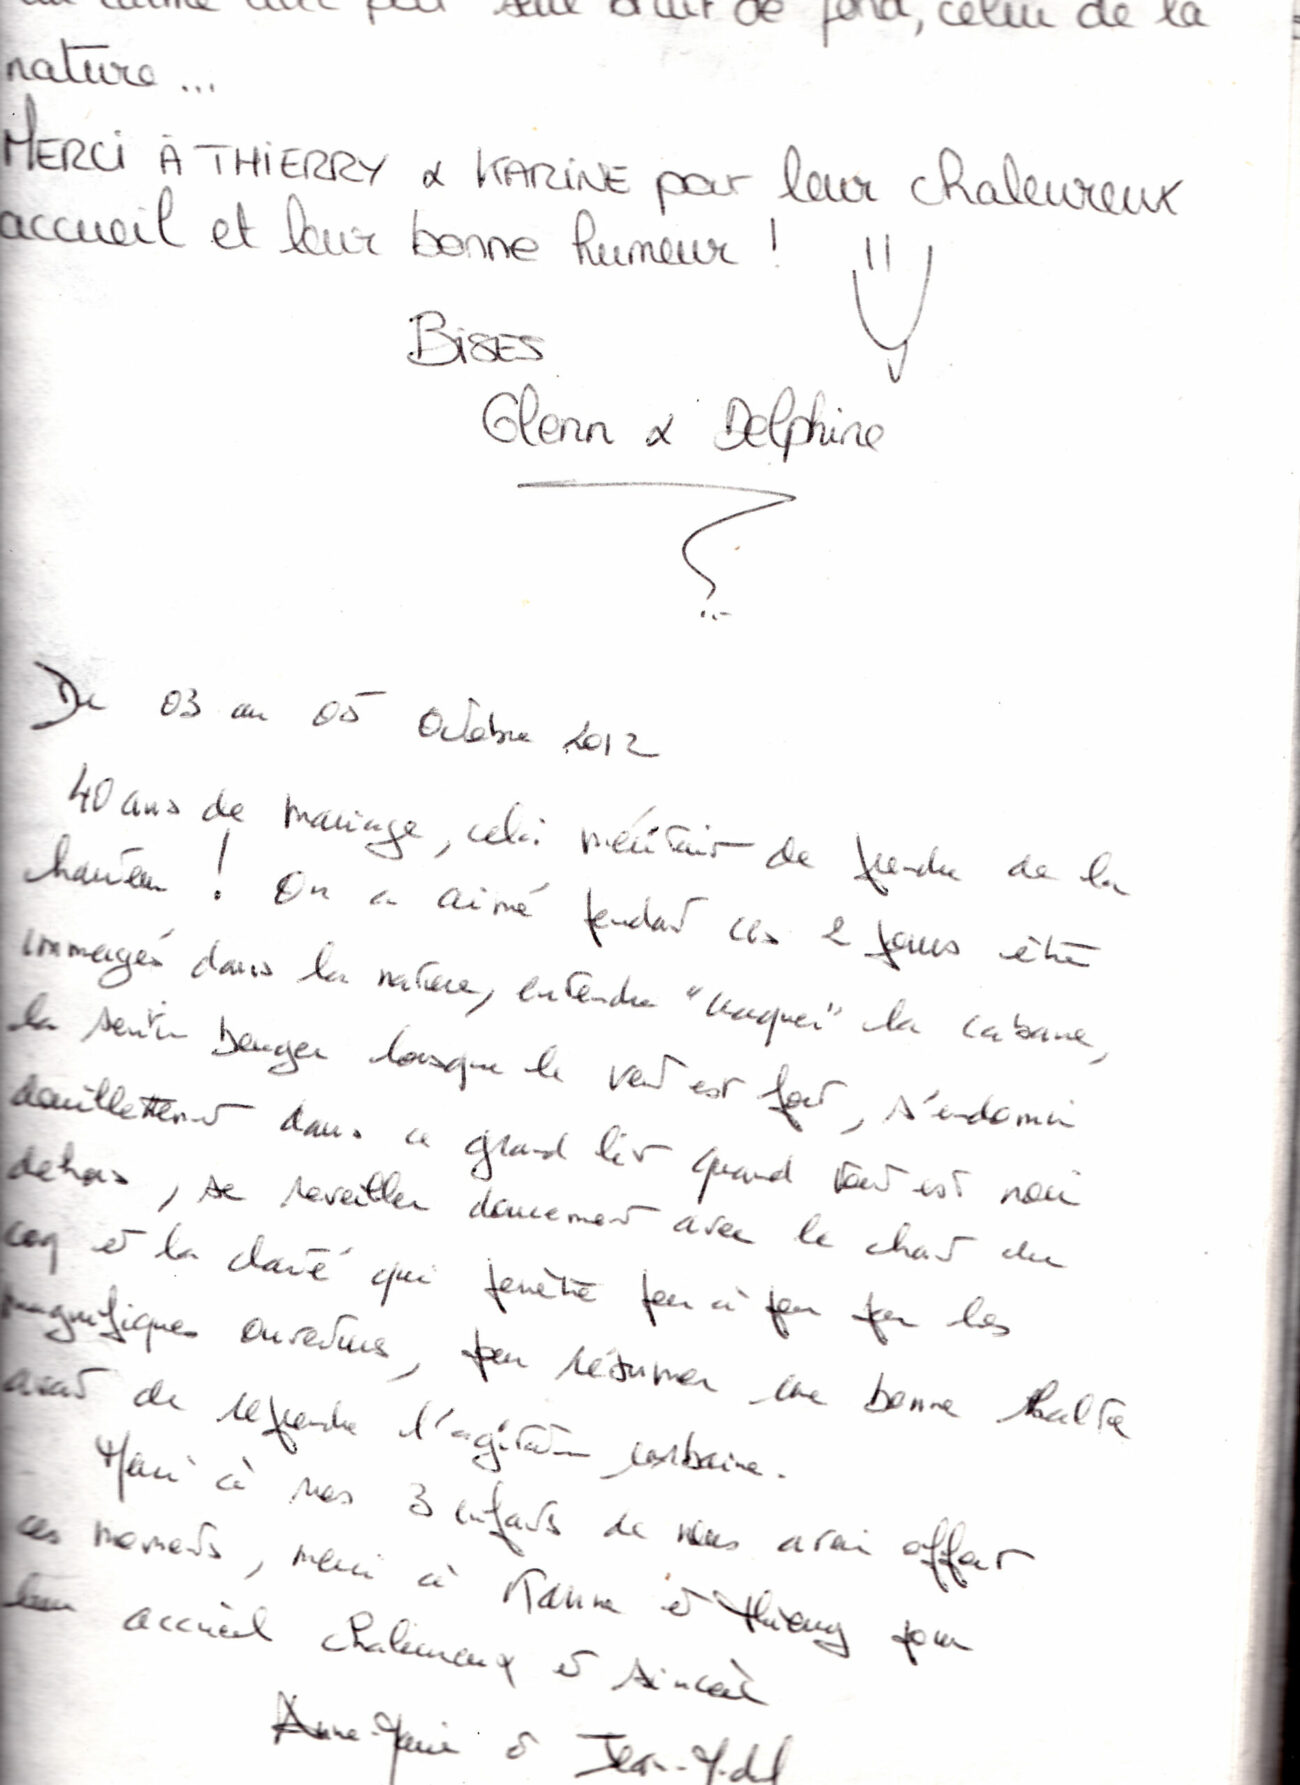 au calme avec pour seul bruit de fond, celui de la
nature...
MERCi À THiERRY & KARiNE pour leur chaleureux
accueil et leur bonne humeur !
BiSES
Glenn & Delphine
Du 03 au 05 Octobre 2012
40 ans de mariage, cela méritait de prendre de la
hauteur ! On a aimé pendant ces 2 jours être
immergés dans la nature, entendre "craquer" la cabane,
la sentir bouger lorsque le vent est fort, s'endormir
douillettement dans ce grand lit quand tout est noir
dehors, se réveiller doucement avec le chant du
coq et la clarté qui pénètre peu à peu par les
magnifiques ouvertures, pour résumer une bonne halte
avant de reprendre l'agitation urbaine.
Merci à nos 3 enfants de nous avoir offert
ces moments, merci à Karine et Thierry pour
leur accueil chaleureux et sincère
Anne-Marie et Jean-Michel